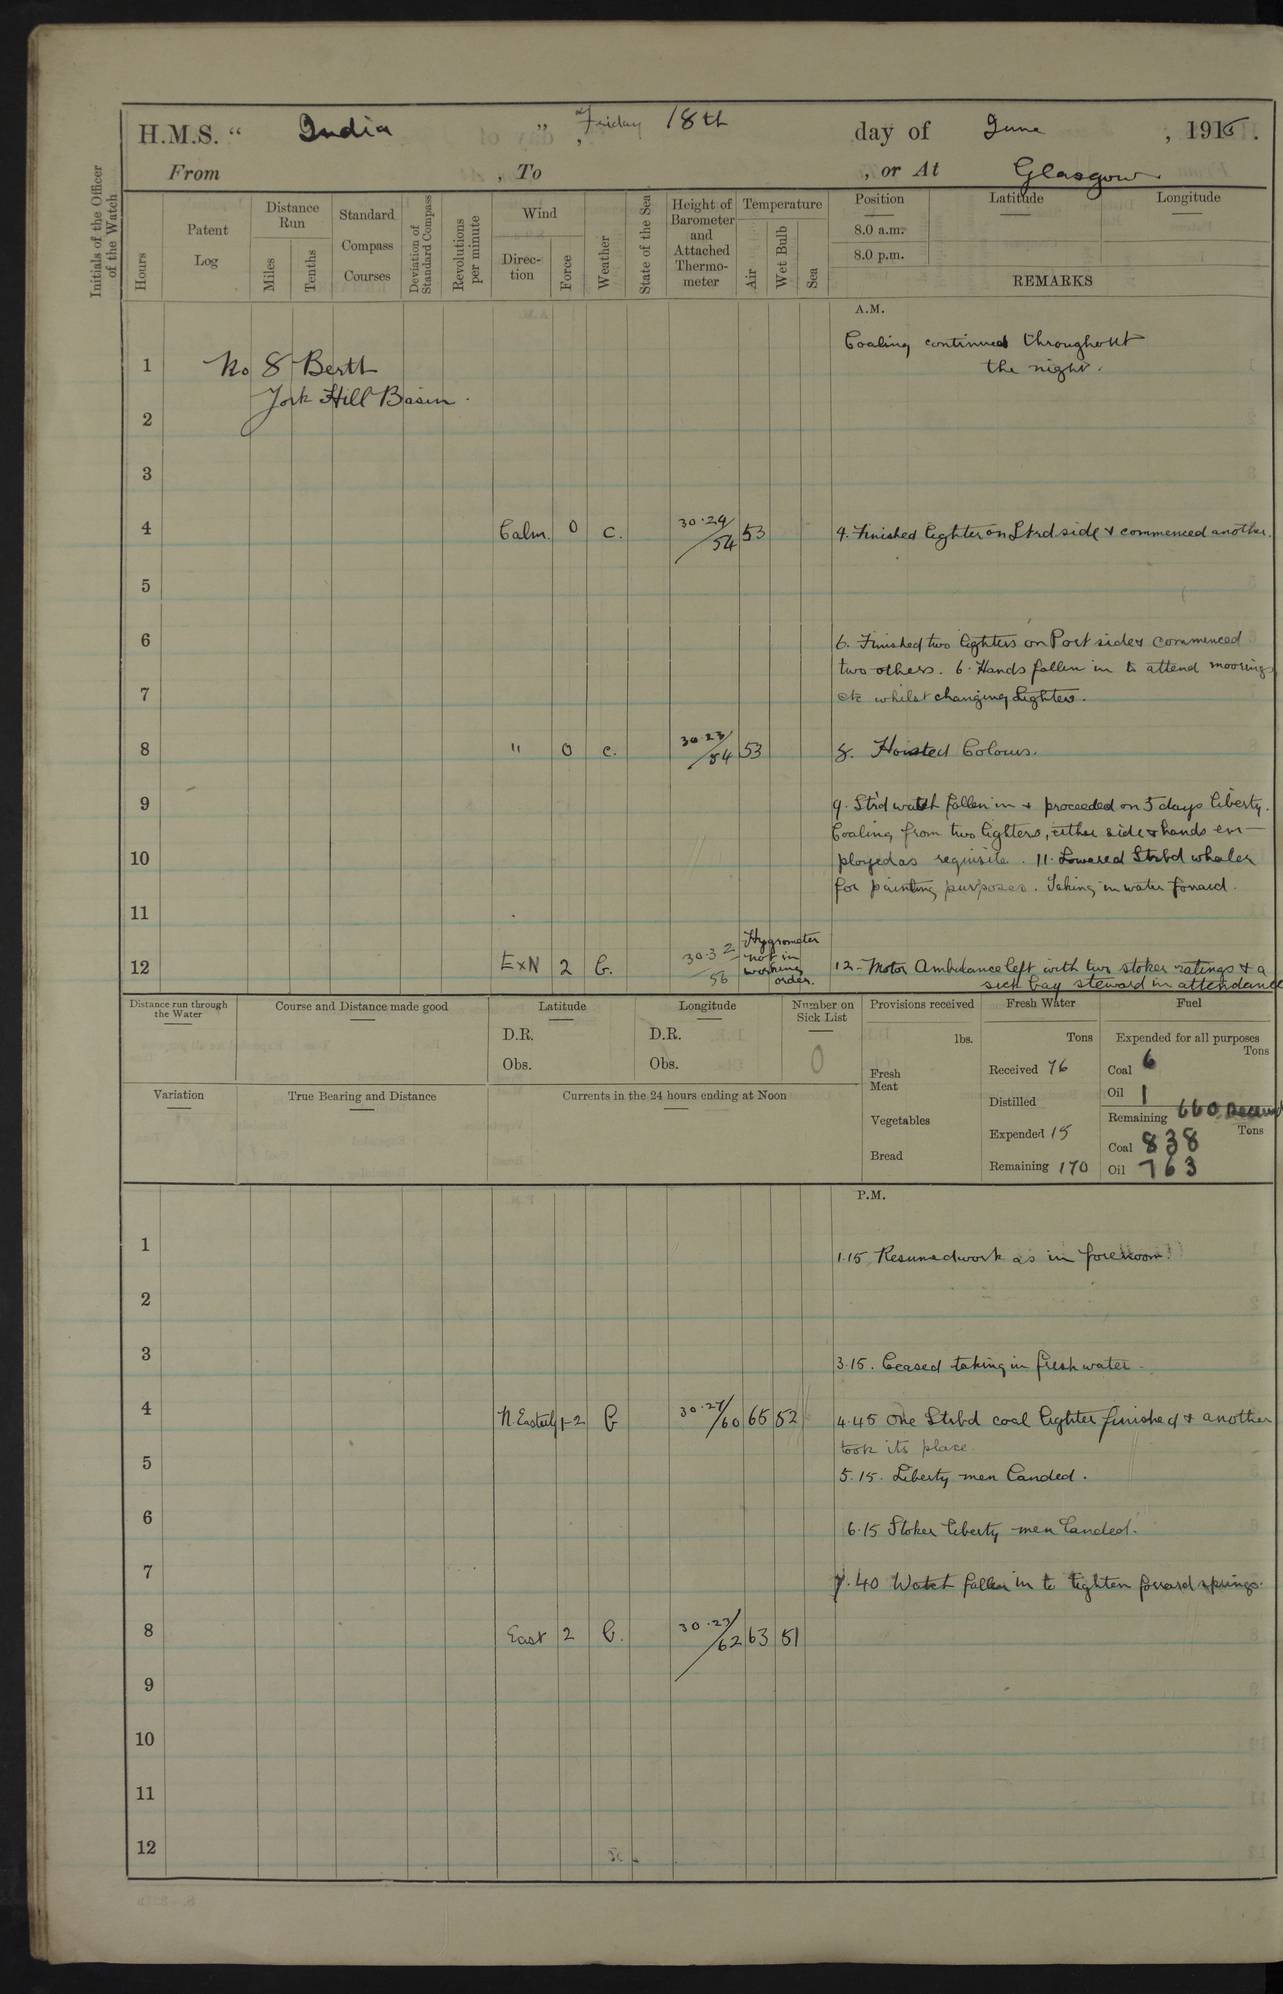 H.M.S. “ India ” , Friday 18th day of June , 1915 .
From , To , or At Glasgow.
Initials of the Officer
of the Watch
Hours
Patent
Log
Distance
Run
Miles
Tenths
Standard
Compass
Courses
Deviation of
Standard Compass
Revolutions
per minute
Wind
Direc-
tion
Force
Weather
State of the Sea
Height of
Barometer
and
Attached
Thermo-
meter
Temperature
Air
Wet Bulb
Sea
Position
8.0 a.m.
8.0 p.m.
Latitude
Longitude
REMARKS
A.M.
Coaling continued throughout
the night.
1 No 8 Berth
York Hill Basin.
2
3
4 Calm. 0 c. 30.24/54 53 4. Finished lighter on Strd side & commenced another.
5
6 6. Finished two lighters on Port side & commenced
two others. 6. Hands fallen in to attend moorings
7 etc whilst changing lighters.
8 " 0 c. 30.23/54 53 8. Hoisted Colours.
9 9. Strd watch fallen in & proceeded on 5 days liberty.
Coaling from two lighters, either side & hands em-
10 ployed as requisite. 11. Lowered Strbd whaler
for painting purposes. Taking in water forward.
11
12 ExN 2 b. 30.32/56 Hygrometer not in working order. 12- Motor Ambulance left with two stoker ratings & a
sick bay steward in attendance
Distance run through
the Water
Course and Distance made good
Latitude
D.R.
Obs.
Longitude
D.R.
Obs.
Number on
Sick List
0
Provisions received
lbs.
Fresh
Meat
Vegetables
Bread
Fresh Water
Tons
Received 76
Distilled
Expended 15
Remaining 170
Fuel
Expended for all purposes
Tons
Coal 6
Oil 1
660 Received
Remaining
Tons
Coal 838
Oil 763
Variation
True Bearing and Distance
Currents in the 24 hours ending at Noon
P.M.
1 1.15 Resumed work as in forenoon.
2
3 3.15. Ceased taking in fresh water.
4 N.Easterly 1-2 b 30.27/60 65 52 4.45 One Strbd coal lighter finished & another
took its place
5 5.15. Liberty men landed.
6 6.15 Stoker liberty men landed.
7 7.40 Watch fallen in to tighten forward springs.
8 East 2 b. 30.23/62 63 51
9
10
11
12